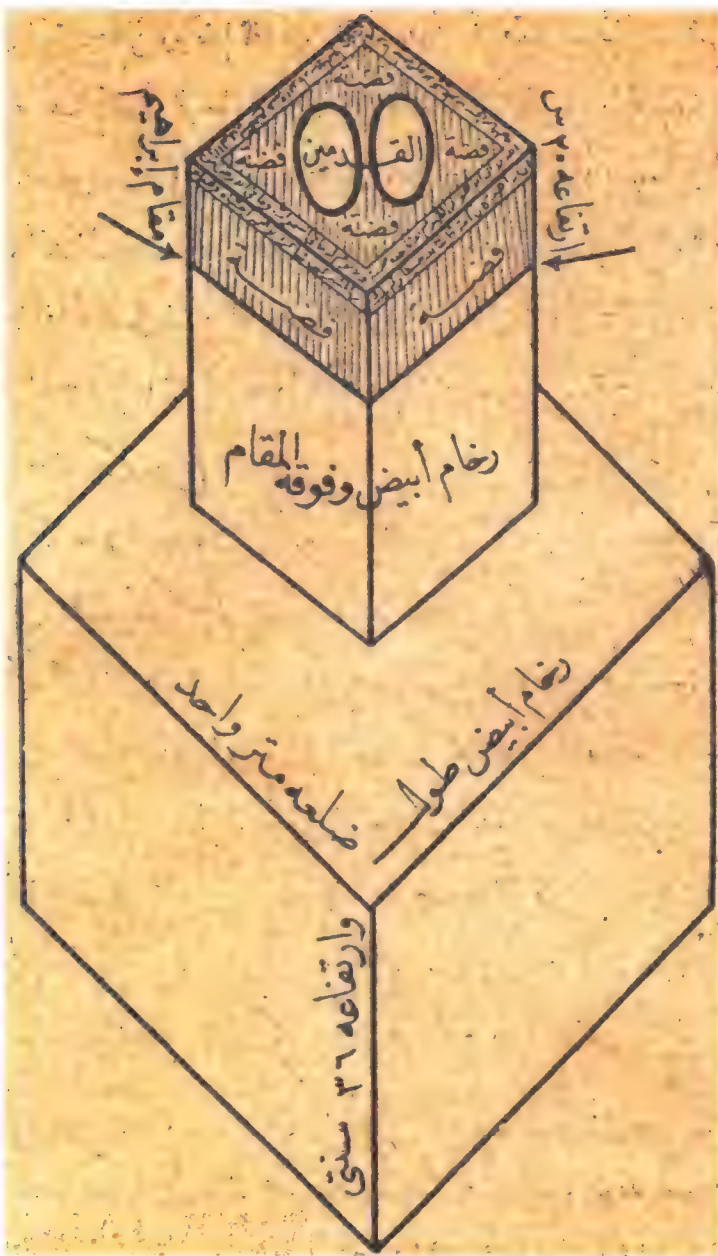 مقام إبراهيم
ارتفاعه ٢٠ س
فضة
فضة
القدمين
فضة
فضة
فضــة
فضــة
رخام أبيض وفوقه المقام
رخام أبيض طول
ضلعه متر واحد
وارتفاعه ٣٦ سنتي